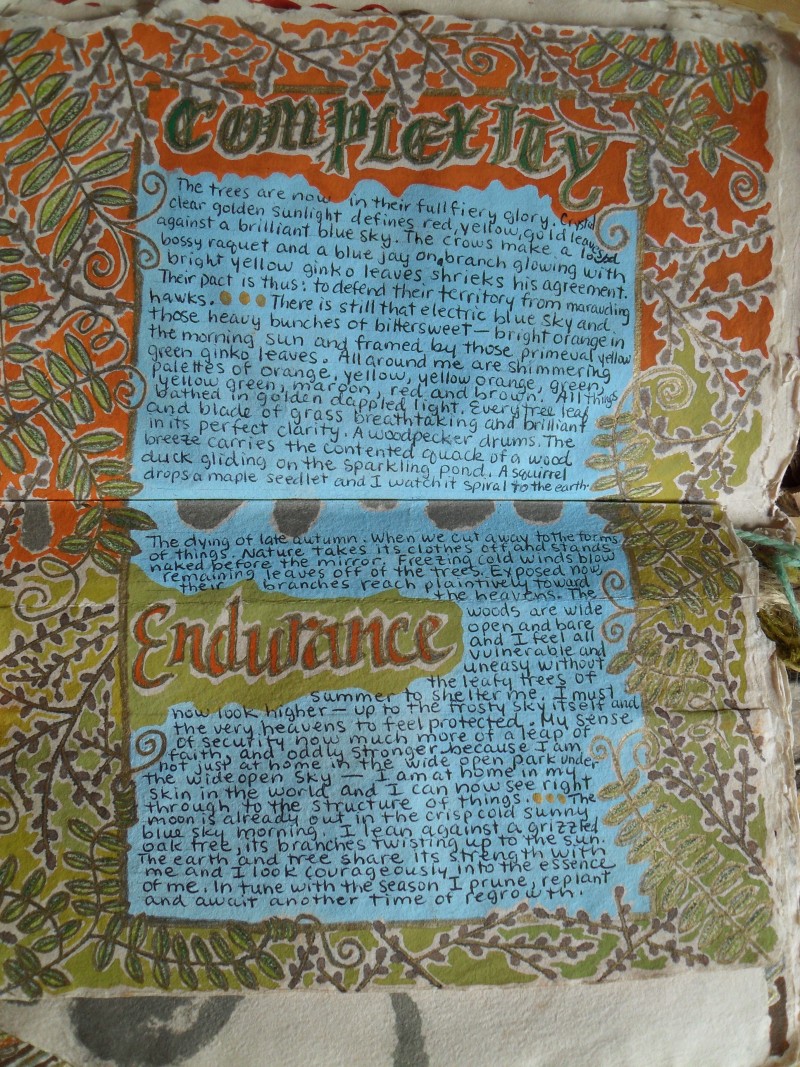 COMPLEXITY
The trees are now in their full fiery glory. Crystal
clear golden sunlight defines red, yellow, gold leaves
against a brilliant blue sky. The crows make a loud
bossy raquet and a blue jay on branch glowing with
bright yellow ginko leaves shrieks his agreement.
Their pact is thus: to defend their territory from marauding
hawks. ●●● There is still that electric blue sky and
those heavy bunches of bittersweet — bright orange in
the morning sun and framed by those primeval yellow
green ginko leaves. All around me are shimmering
palettes of orange, yellow, yellow orange, green,
yellow green, maroon, red and brown. All things
bathed in golden dappled light. Every tree leaf
and blade of grass breathtaking and brilliant
in its perfect clarity. A woodpecker drums. The
breeze carries the contented quack of a wood
duck gliding on the sparkling pond. A squirrel
drops a maple seedlet and I watch it spiral to the earth.
The dying of late autumn. When we cut away to the forms
of things. Nature takes its clothes off and stands
naked before the mirror. Freezing cold winds blow
remaining leaves off of the trees. Exposed now,
their branches reach plaintively toward
the heavens. The
Endurance
woods are wide
open and bare
and I feel all
vulnerable and
uneasy without
the leafy trees of
summer to shelter me. I must
now look higher — up to the frosty sky itself and
the very heavens to feel protected. My sense
of security now much more of a leap of
faith and oddly stronger because I am
not just at home in the wide open park under
the wide open sky — I am at home in my
skin in the world and I can now see right
through to the structure of things. ●●● The
moon is already out in the crisp cold sunny
blue sky morning. I lean against a grizzled
oak tree, its branches twisting up to the sun.
The earth and tree share its strength with
me and I look courageously into the essence
of me. In tune with the season I prune, replant
and await another time of regrowth.